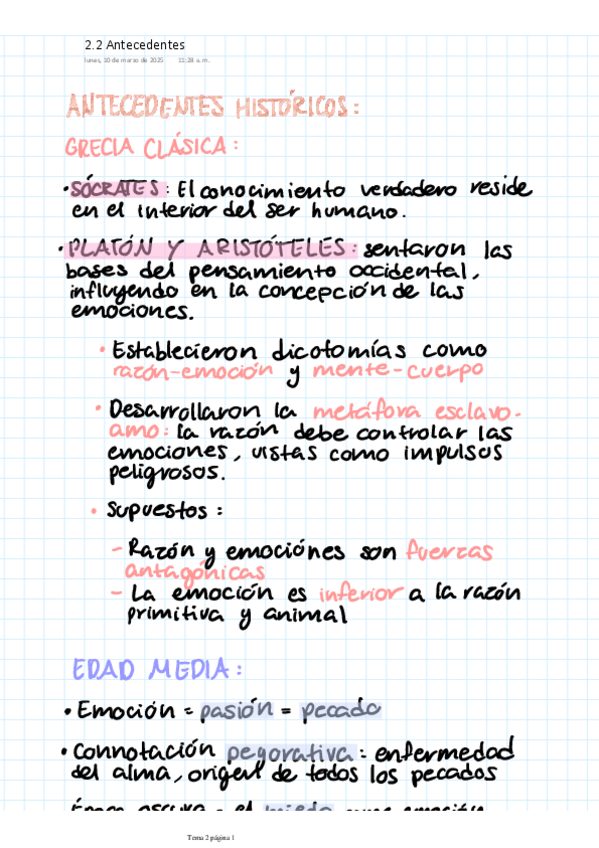 2.2 Antecedentes
lunes, 10 de marzo de 2025 11:28 a. m.
ANTECEDENTES HISTÓRICOS:
GRECIA CLÁSICA:
• SÓCRATES: El conocimiento verdadero reside
en el interior del ser humano.
• PLATÓN Y ARISTÓTELES: sentaron las
bases del pensamiento occidental,
influyendo en la concepción de las
emociones.
• Establecieron dicotomías como
razón-emoción y mente-cuerpo
• Desarrollaron la metáfora esclavo-
amo: la razón debe controlar las
emociones, vistas como impulsos
peligrosos.
• Supuestos:
- Razón y emociónes son fuerzas
antagónicas
- La emoción es inferior a la razón
primitiva y animal
EDAD MEDIA:
• Emoción = pasión = pecado
• Connotación pegorativa: enfermedad
del alma, origen de todos los pecados
Época oscura el miedo como emoción
Tema 2 página 1